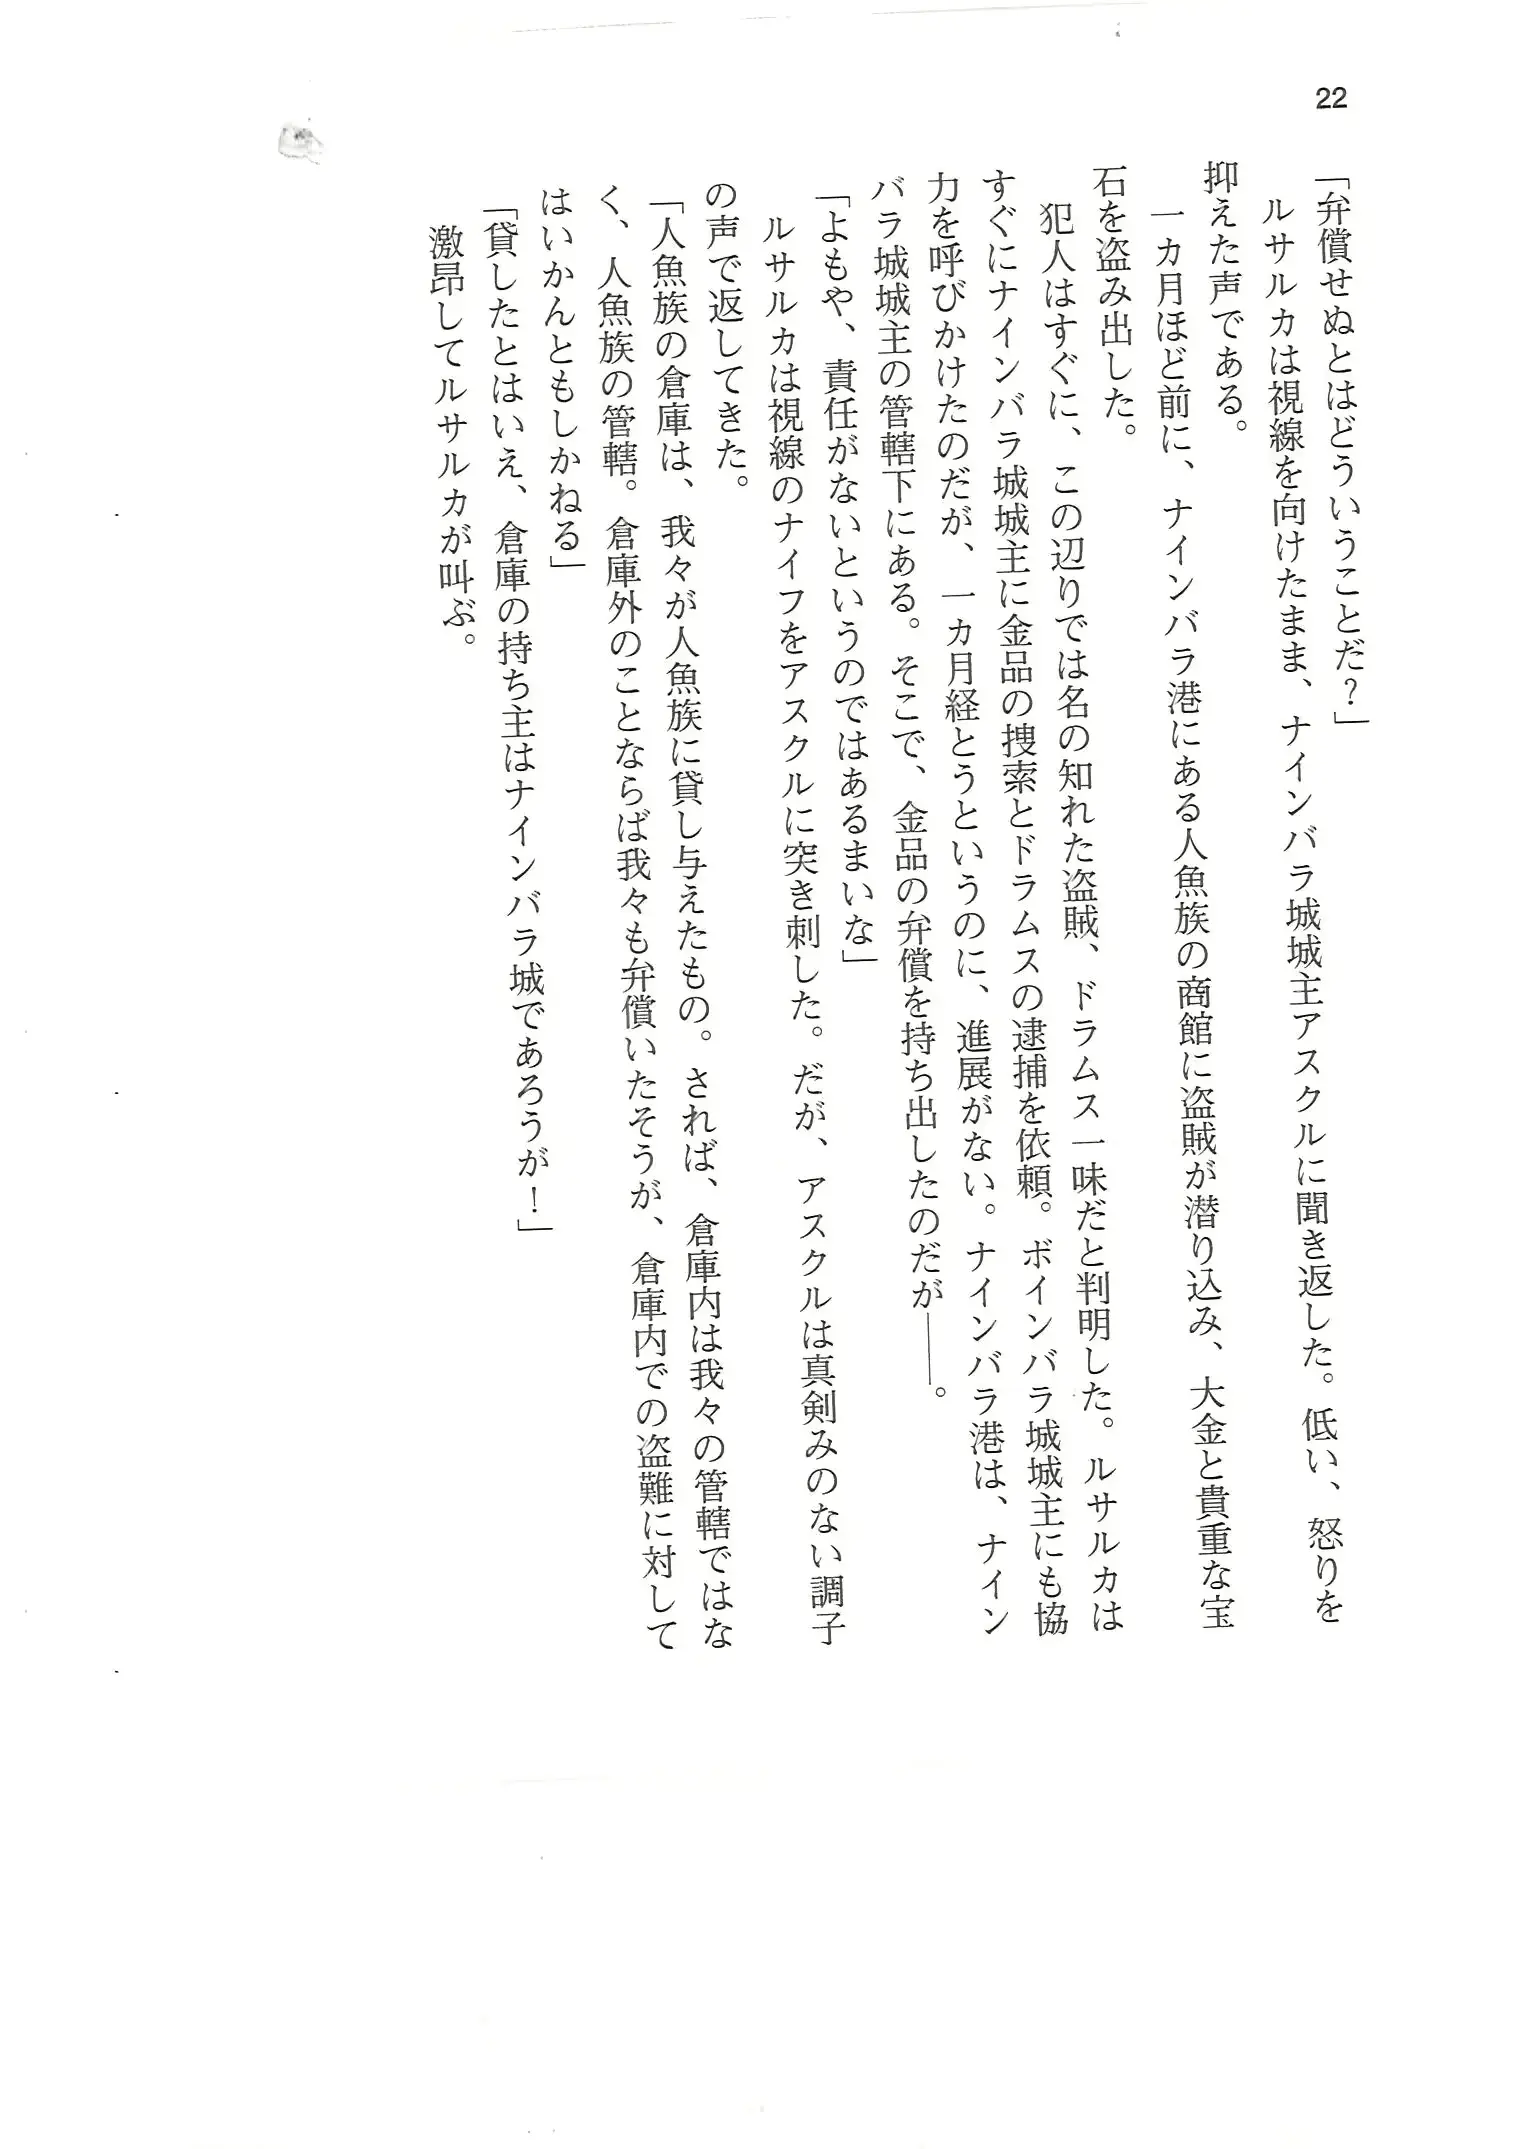 22
「弁償せぬとはどういうことだ？」
ルサルカは視線を向けたまま、ナインバラ城城主アスクルに聞き返した。低い、怒りを
抑えた声である。
一カ月ほど前に、ナインバラ港にある人魚族の商館に盗賊が潜り込み、大金と貴重な宝
石を盗み出した。
犯人はすぐに、この辺りでは名の知れた盗賊、ドラムス一味だと判明した。ルサルカは
すぐにナインバラ城城主に金品の捜索とドラムスの逮捕を依頼。ボインバラ城城主にも協
力を呼びかけたのだが、一カ月経とうというのに、進展がない。ナインバラ港は、ナイン
バラ城城主の管轄下にある。そこで、金品の弁償を持ち出したのだが――。
「よもや、責任がないというのではあるまいな」
ルサルカは視線のナイフをアスクルに突き刺した。だが、アスクルは真剣みのない調子
の声で返してきた。
「人魚族の倉庫は、我々が人魚族に貸し与えたもの。されば、倉庫内は我々の管轄ではな
く、人魚族の管轄。倉庫外のことならば我々も弁償いたそうが、倉庫内での盗難に対して
はいかんともしかねる」
「貸したとはいえ、倉庫の持ち主はナインバラ城であろうが！」
激昂してルサルカが叫ぶ。